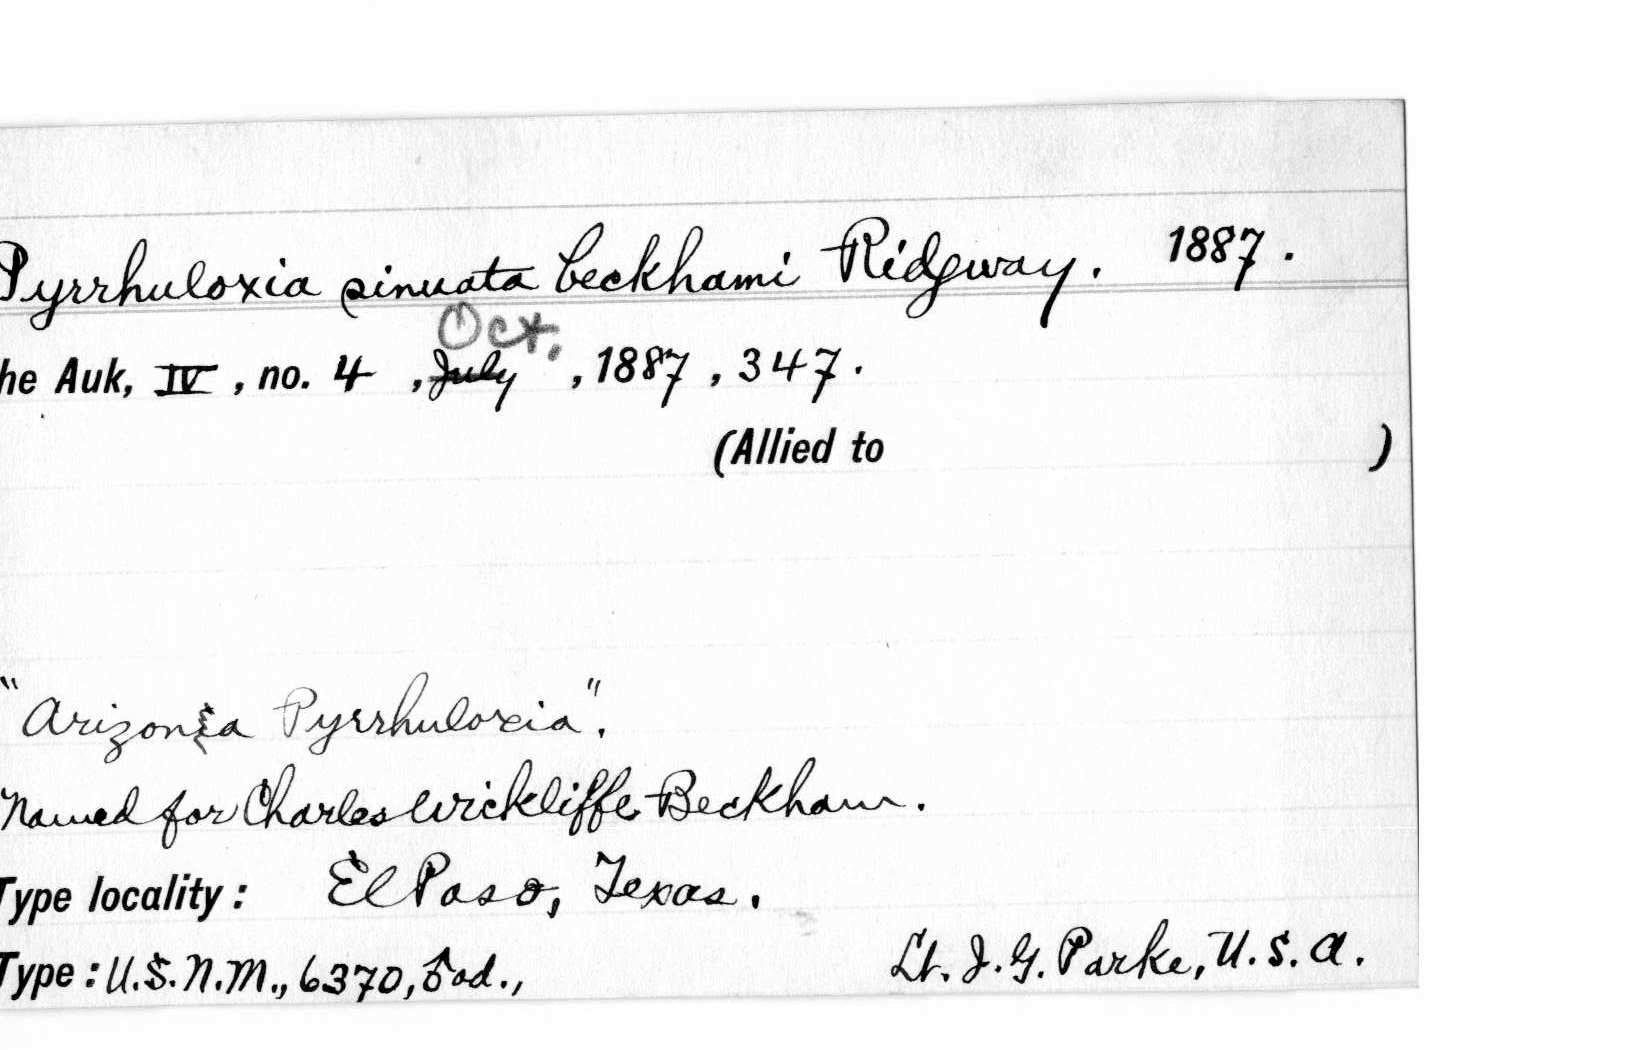 Pyrrhuloxia sinuata beckhami Ridgway. 1887.
Oct.
he Auk, IV, no. 4, July, 1887, 347.
(Allied to )
"Arizona Pyrrhuloxia".
Named for Charles Wickliffe Beckham.
Type locality: El Paso, Texas.
Type: U.S.N.M., 6370, ♂ad., Lt. J. G. Parke, U.S.A.